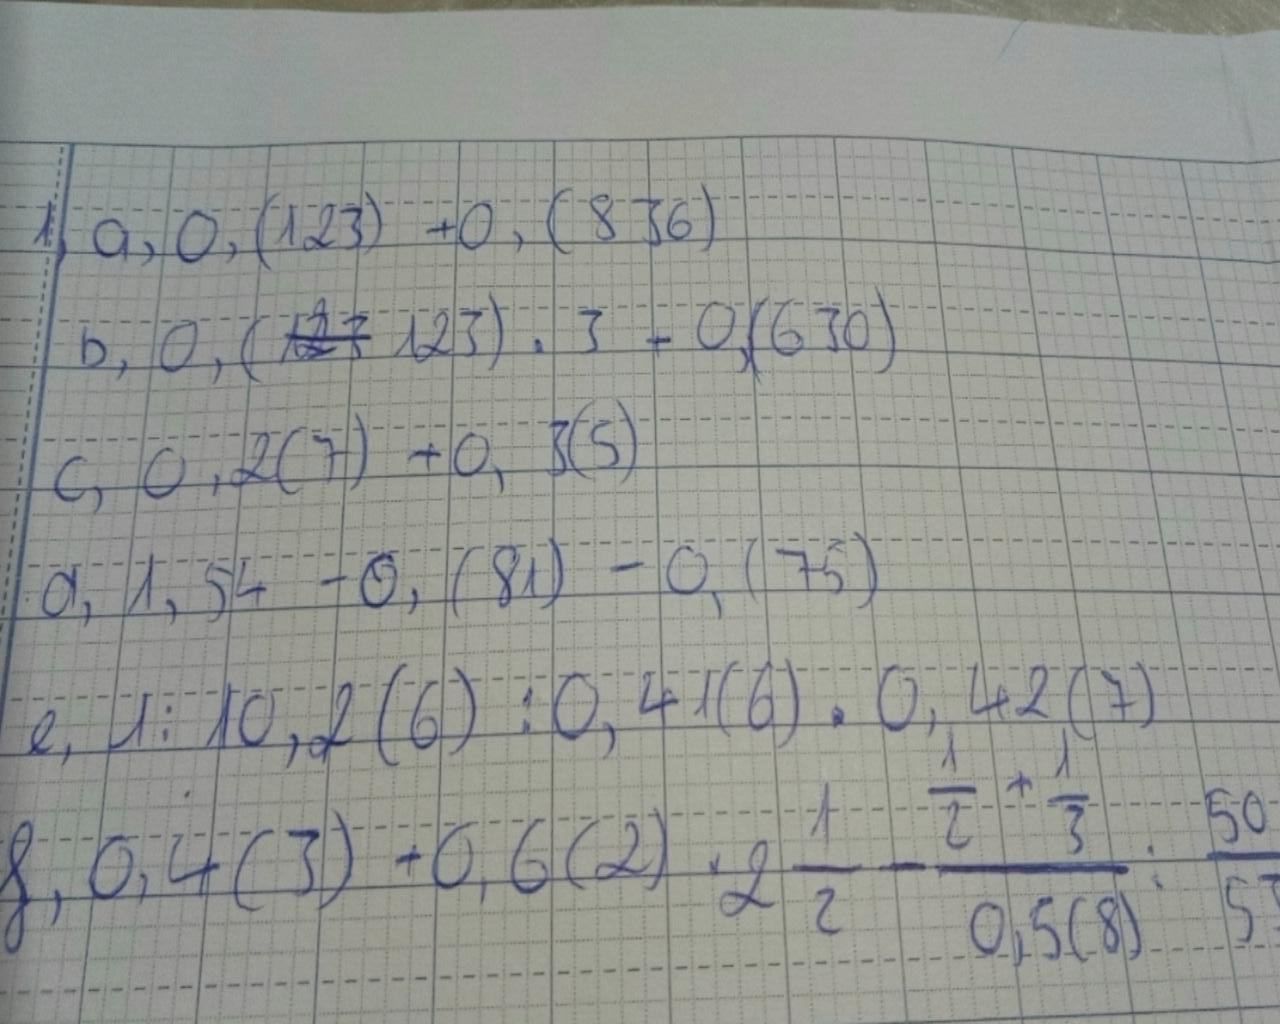 1, a, 0,(123) + 0,(836)
b, 0,(123) . 3 + 0,(630)
c, 0,2(7) + 0,3(5)
d, 1,54 - 0,(81) - 0,(75)
e, 1:10,2(6) : 0,41(6) . 0,42(7)
f, 0,4(3) + 0,6(2) . 2 1/2 - (1/2 + 1/3)/0,5(8) : 50/53